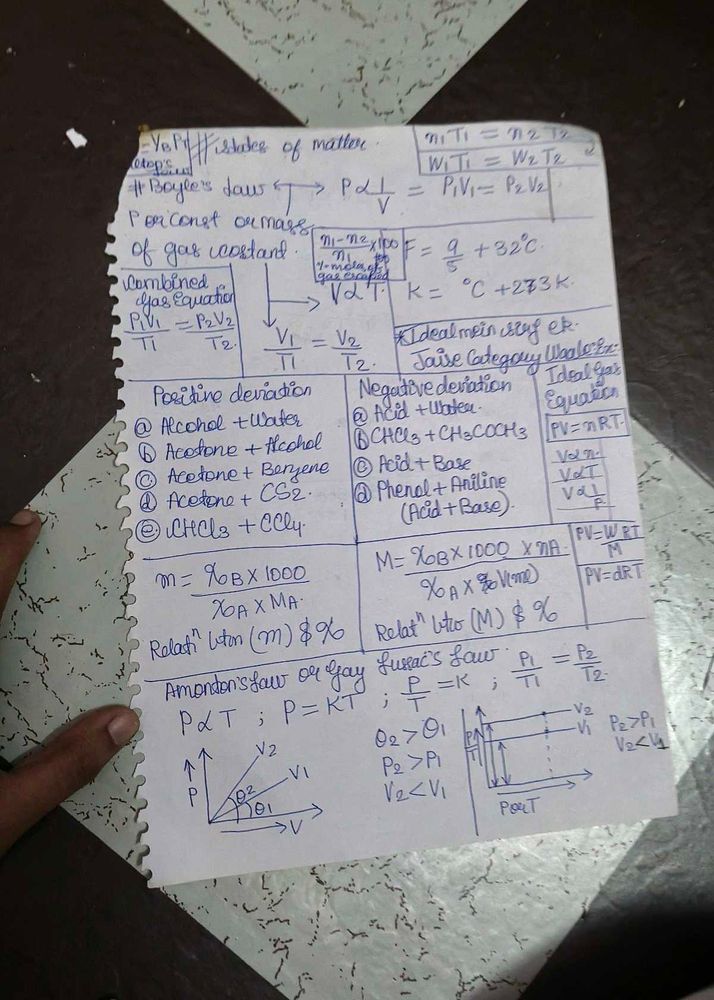 =VBPT # states of matter.
n1T1 = n2T2
W1T1 = W2T2
# Boyle's law ↔ P∝1/V = P1V1 = P2V2
P or const or mass
of gas costant.
n1-n2/n1 x100
%-moles of
gas escaped
F = 9/5 + 32°C.
K = °C + 273K.
Combined
Gas Equation
P1V1/T1 = P2V2/T2.
→ V∝T.
V1/T1 = V2/T2.
*Ideal mein sirf ek
Jaise Category Waale Ex:
Positive deviation
(a) Alcohol + Water
(b) Acetone + Alcohol
(c) Acetone + Benzene
(d) Acetone + CS2.
(e) CHCl3 + CCl4.
Negative deviation
(a) Acid + Water.
(b) CHCl3 + CH3COCH3
(c) Acid + Base
(d) Phenol + Aniline
(Acid + Base).
Ideal Gas
Equation
PV=nRT.
V∝n.
V∝T
V∝1/P.
m = %B x 1000 / %A x MA.
Relatn btwn (m) $ %
M = %B x 1000 x nA. / %A x V(ml)
Relatn btw (M) $ %
PV=W/M RT
PV=dRT
Amonton's law or Gay Lussac's law.
P∝T ; P = KT ; P/T = K ; P1/T1 = P2/T2.
↑ P
V2
V1
θ2
θ1
→ V
θ2 > θ1
P2 > P1
V2 < V1
P/T
V2
V1
P or T
P2 > P1
V2 < V1